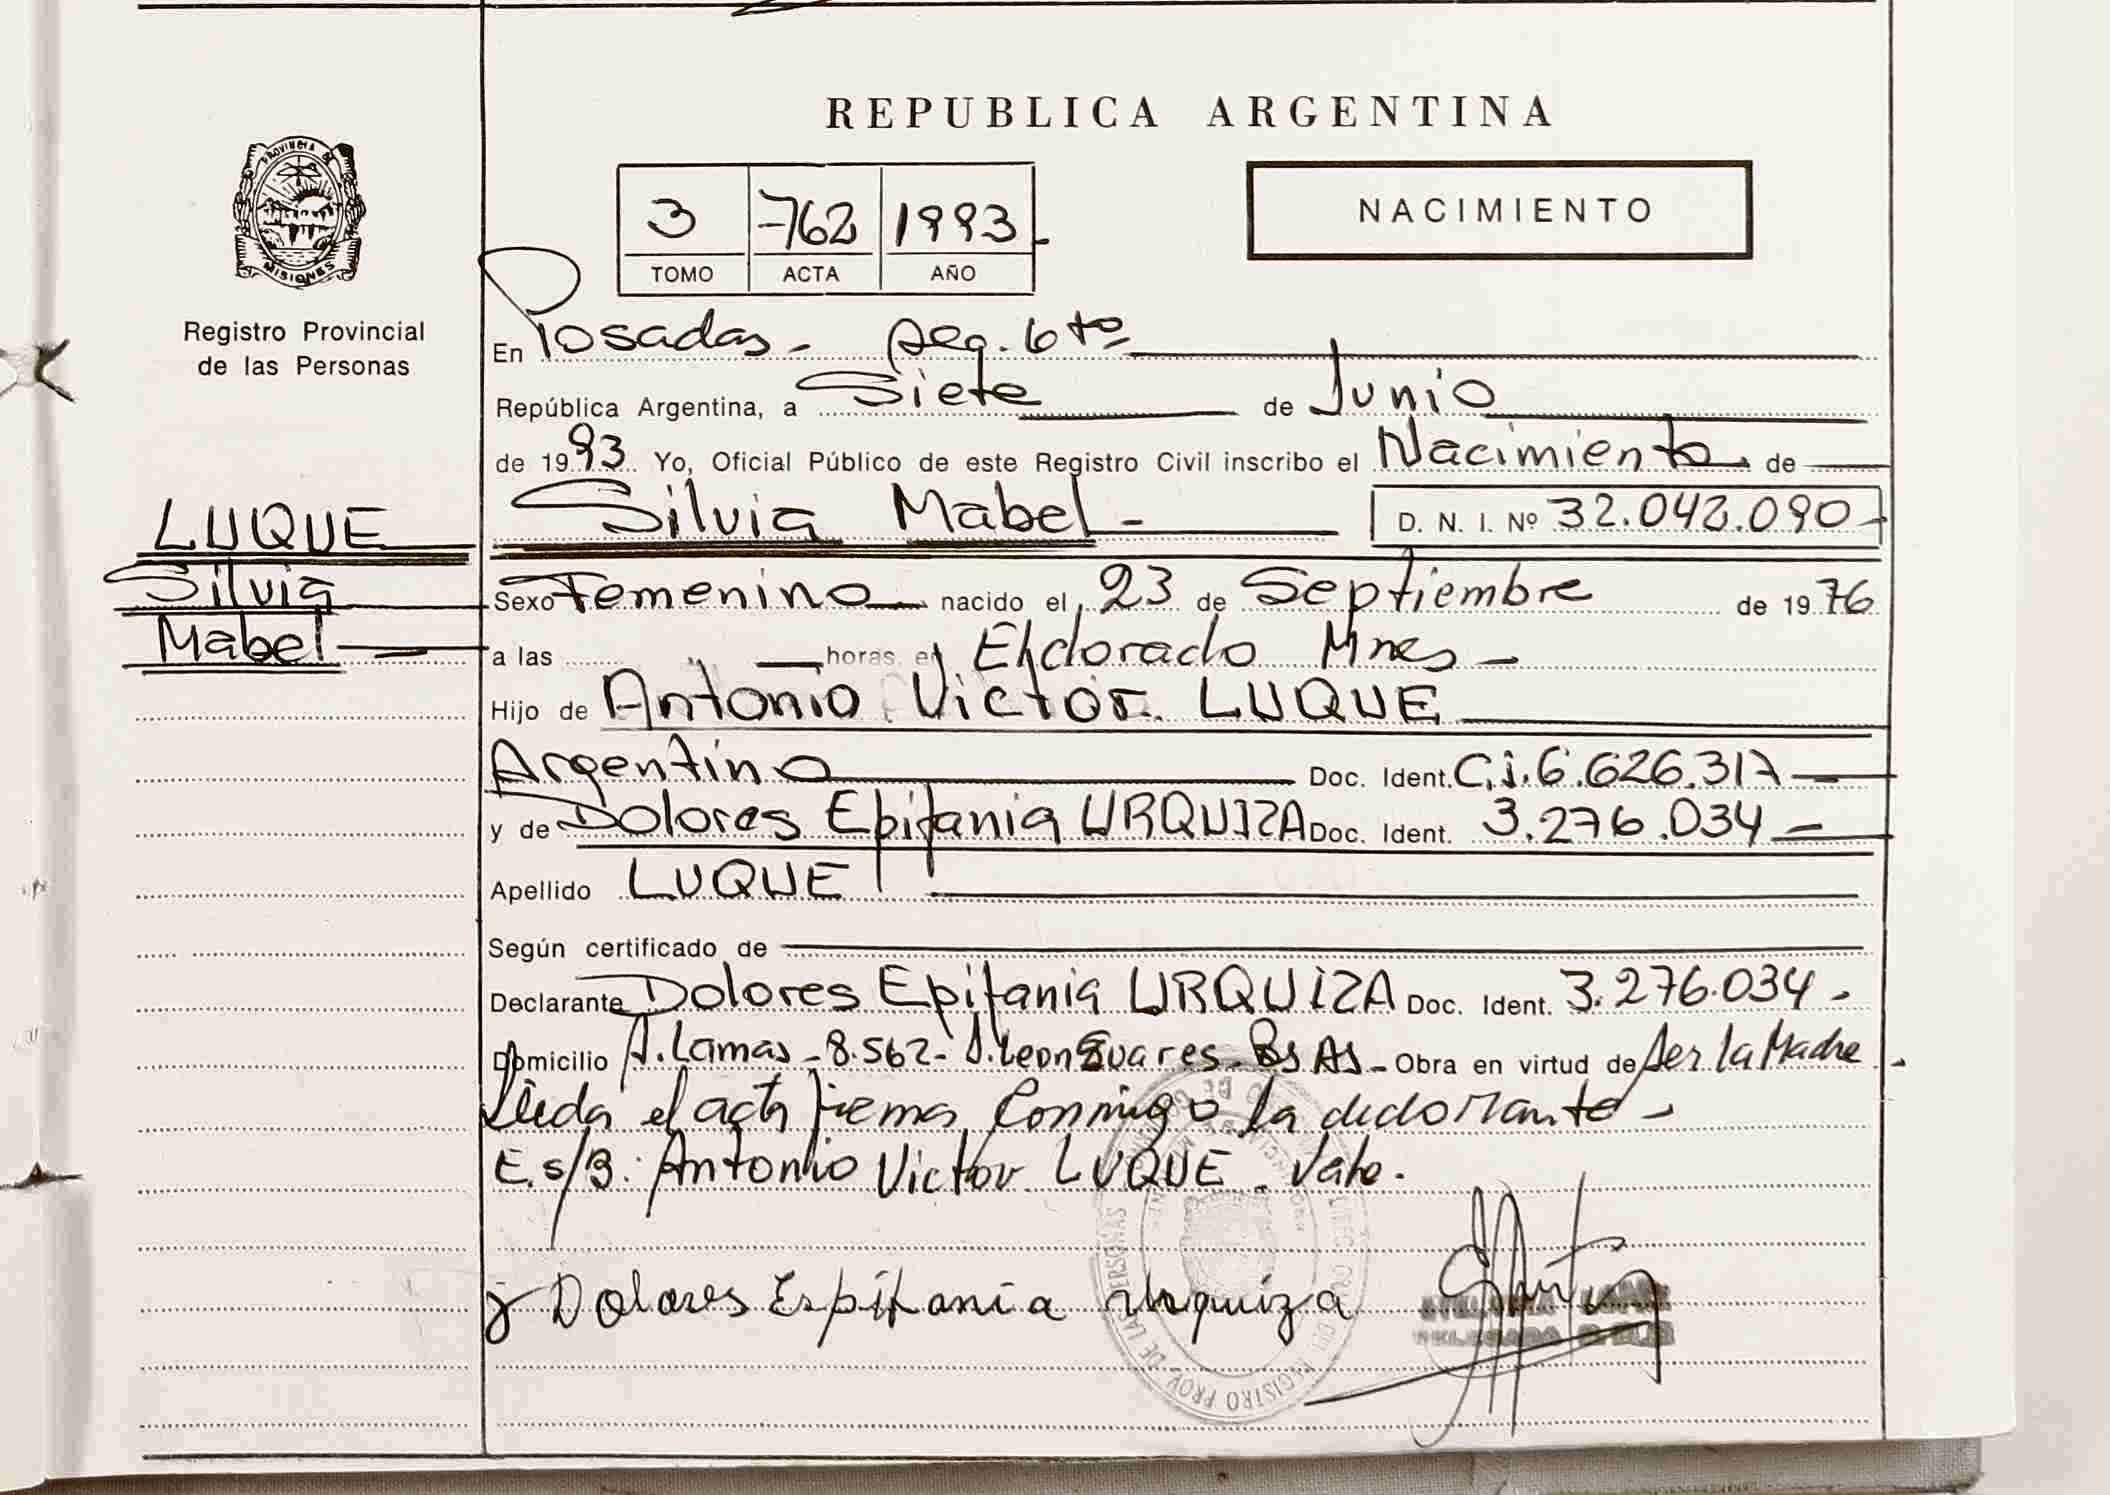 REPUBLICA ARGENTINA
PROVINCIA DE
MISIONES
Registro Provincial
de las Personas
3 762 1993
TOMO ACTA AÑO
NACIMIENTO
En Posadas - Seg. 6to
República Argentina, a Siete de Junio
de 1993 Yo, Oficial Público de este Registro Civil inscribo el Nacimiento de
LUQUE
Silvia
Mabel
Silvia Mabel - D. N. I. Nº 32.042.090-
Sexo Femenino nacido el 23 de Septiembre de 1976
a las horas en Eldorado Mnes -
Hijo de Antonio Victor LUQUE
Argentino Doc. Ident. C.i. 6.626.317
y de Dolores Epifania URQUIZA Doc. Ident. 3.276.034
Apellido LUQUE
Según certificado de
Declarante Dolores Epifania URQUIZA Doc. Ident. 3.276.034 -
Domicilio A. Lamas - 8.562 - J. Leon Suares - Bs As - Obra en virtud de ser la Madre
Leida el acta firma Conmigo la declarante -
E.s/B: Antonio Victor LUQUE. Vale.
Dolores Espifania Urquiza
REGISTRO PROV. DE LAS PERSONAS